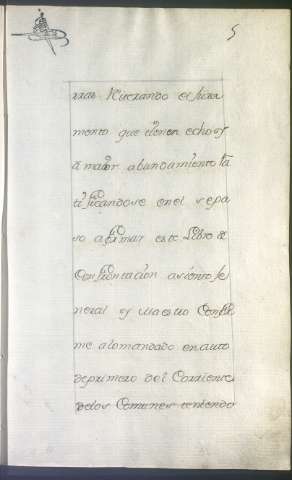 5
mento que tienen echo y
a maior abundamiento Ra
tificandose en el repa
so a firmar este Libro de
Confrontacion asiento Ge
neral y maestro Confor
me a lo mandado en auto
de primero del Corriente
de los Comunes